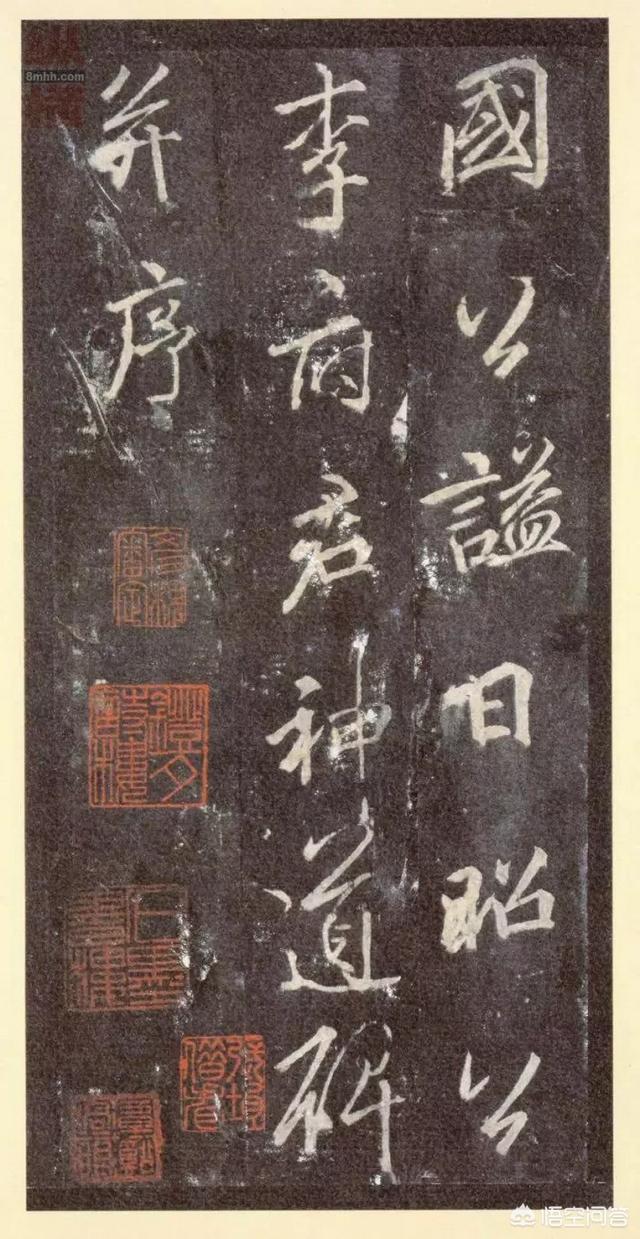 國公謚曰昭公
李府君神道碑
并序
8mhh.com
悟空问答